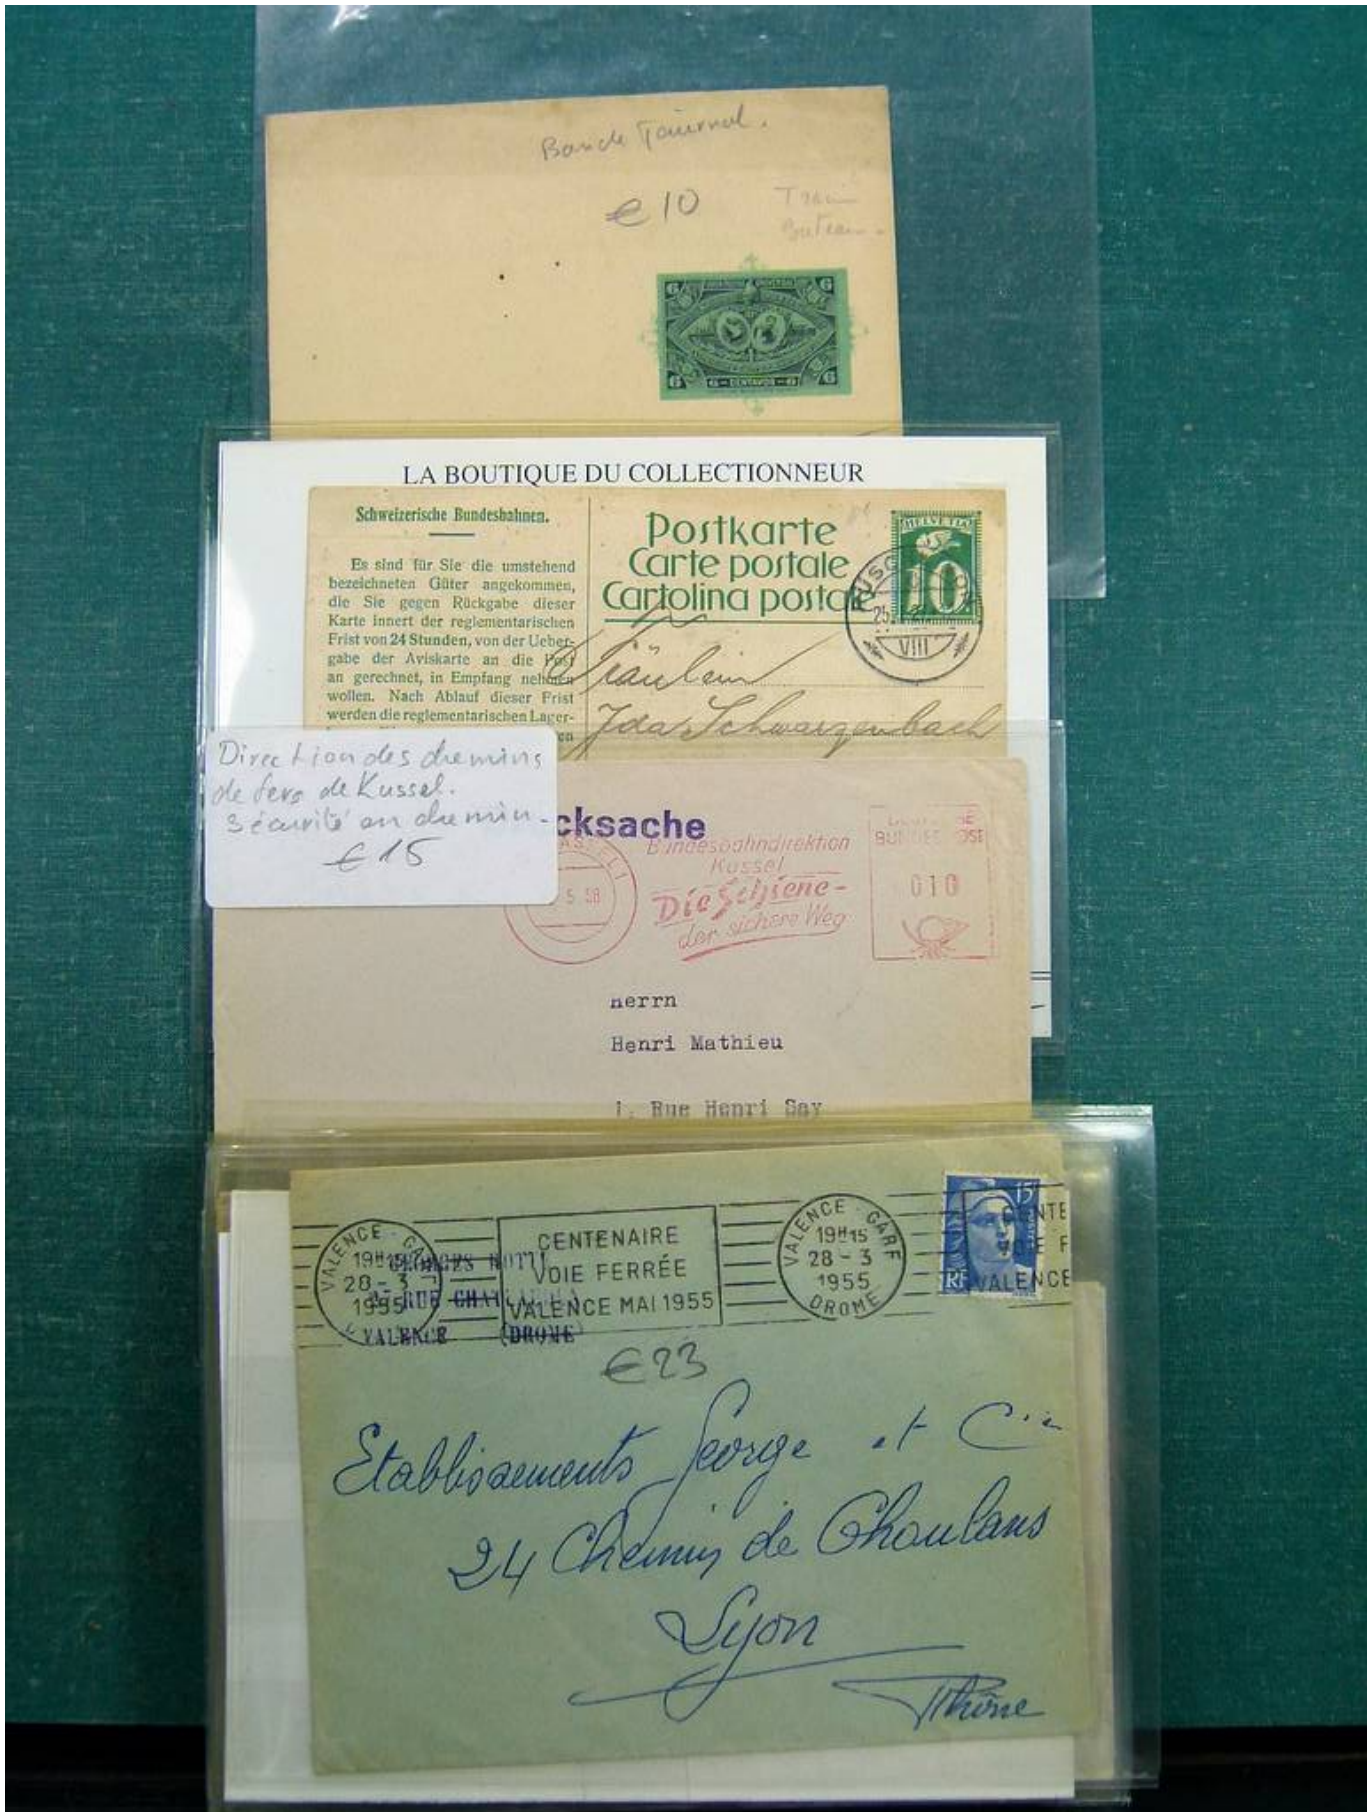 Bande Journal.
€10
Train
Bateau.
6 6
6 - CENTAVOS - 6
LA BOUTIQUE DU COLLECTIONNEUR
Schweizerische Bundesbahnen.
Es sind für Sie die umstehend
bezeichneten Güter angekommen,
die Sie gegen Rückgabe dieser
Karte innert der reglementarischen
Frist von 24 Stunden, von der Ueber-
gabe der Aviskarte an die Post
an gerechnet, in Empfang nehmen
wollen. Nach Ablauf dieser Frist
werden die reglementarischen Lager-
en
Postkarte
Carte postale
Cartolina posta
HELVETIA
10
25
VIII
Fräulein
Ida Schwarzenbach
Direction des chemins
de fers de Kussel.
Sécurité en chemin.
€15
cksache
5.58
Bundesbahndirektion
Kassel
Die Schiene-
der sichere Weg
BUNDESPOST
010
Herrn
Henri Mathieu
1, Rue Henri Say
VALENCE - GARE
19H15
28 - 3
1955
CENTENAIRE
VOIE FERRÉE
VALENCE MAI 1955
VALENCE - GARE
19H15
28 - 3
1955
DROME
15F
RF
CENTE
VOIE F
VALENCE
GEORGES
RUE
VALENCE (DROME)
€23
Etablissements George et Cie
24 Chemin de Choulans
Lyon
Rhône